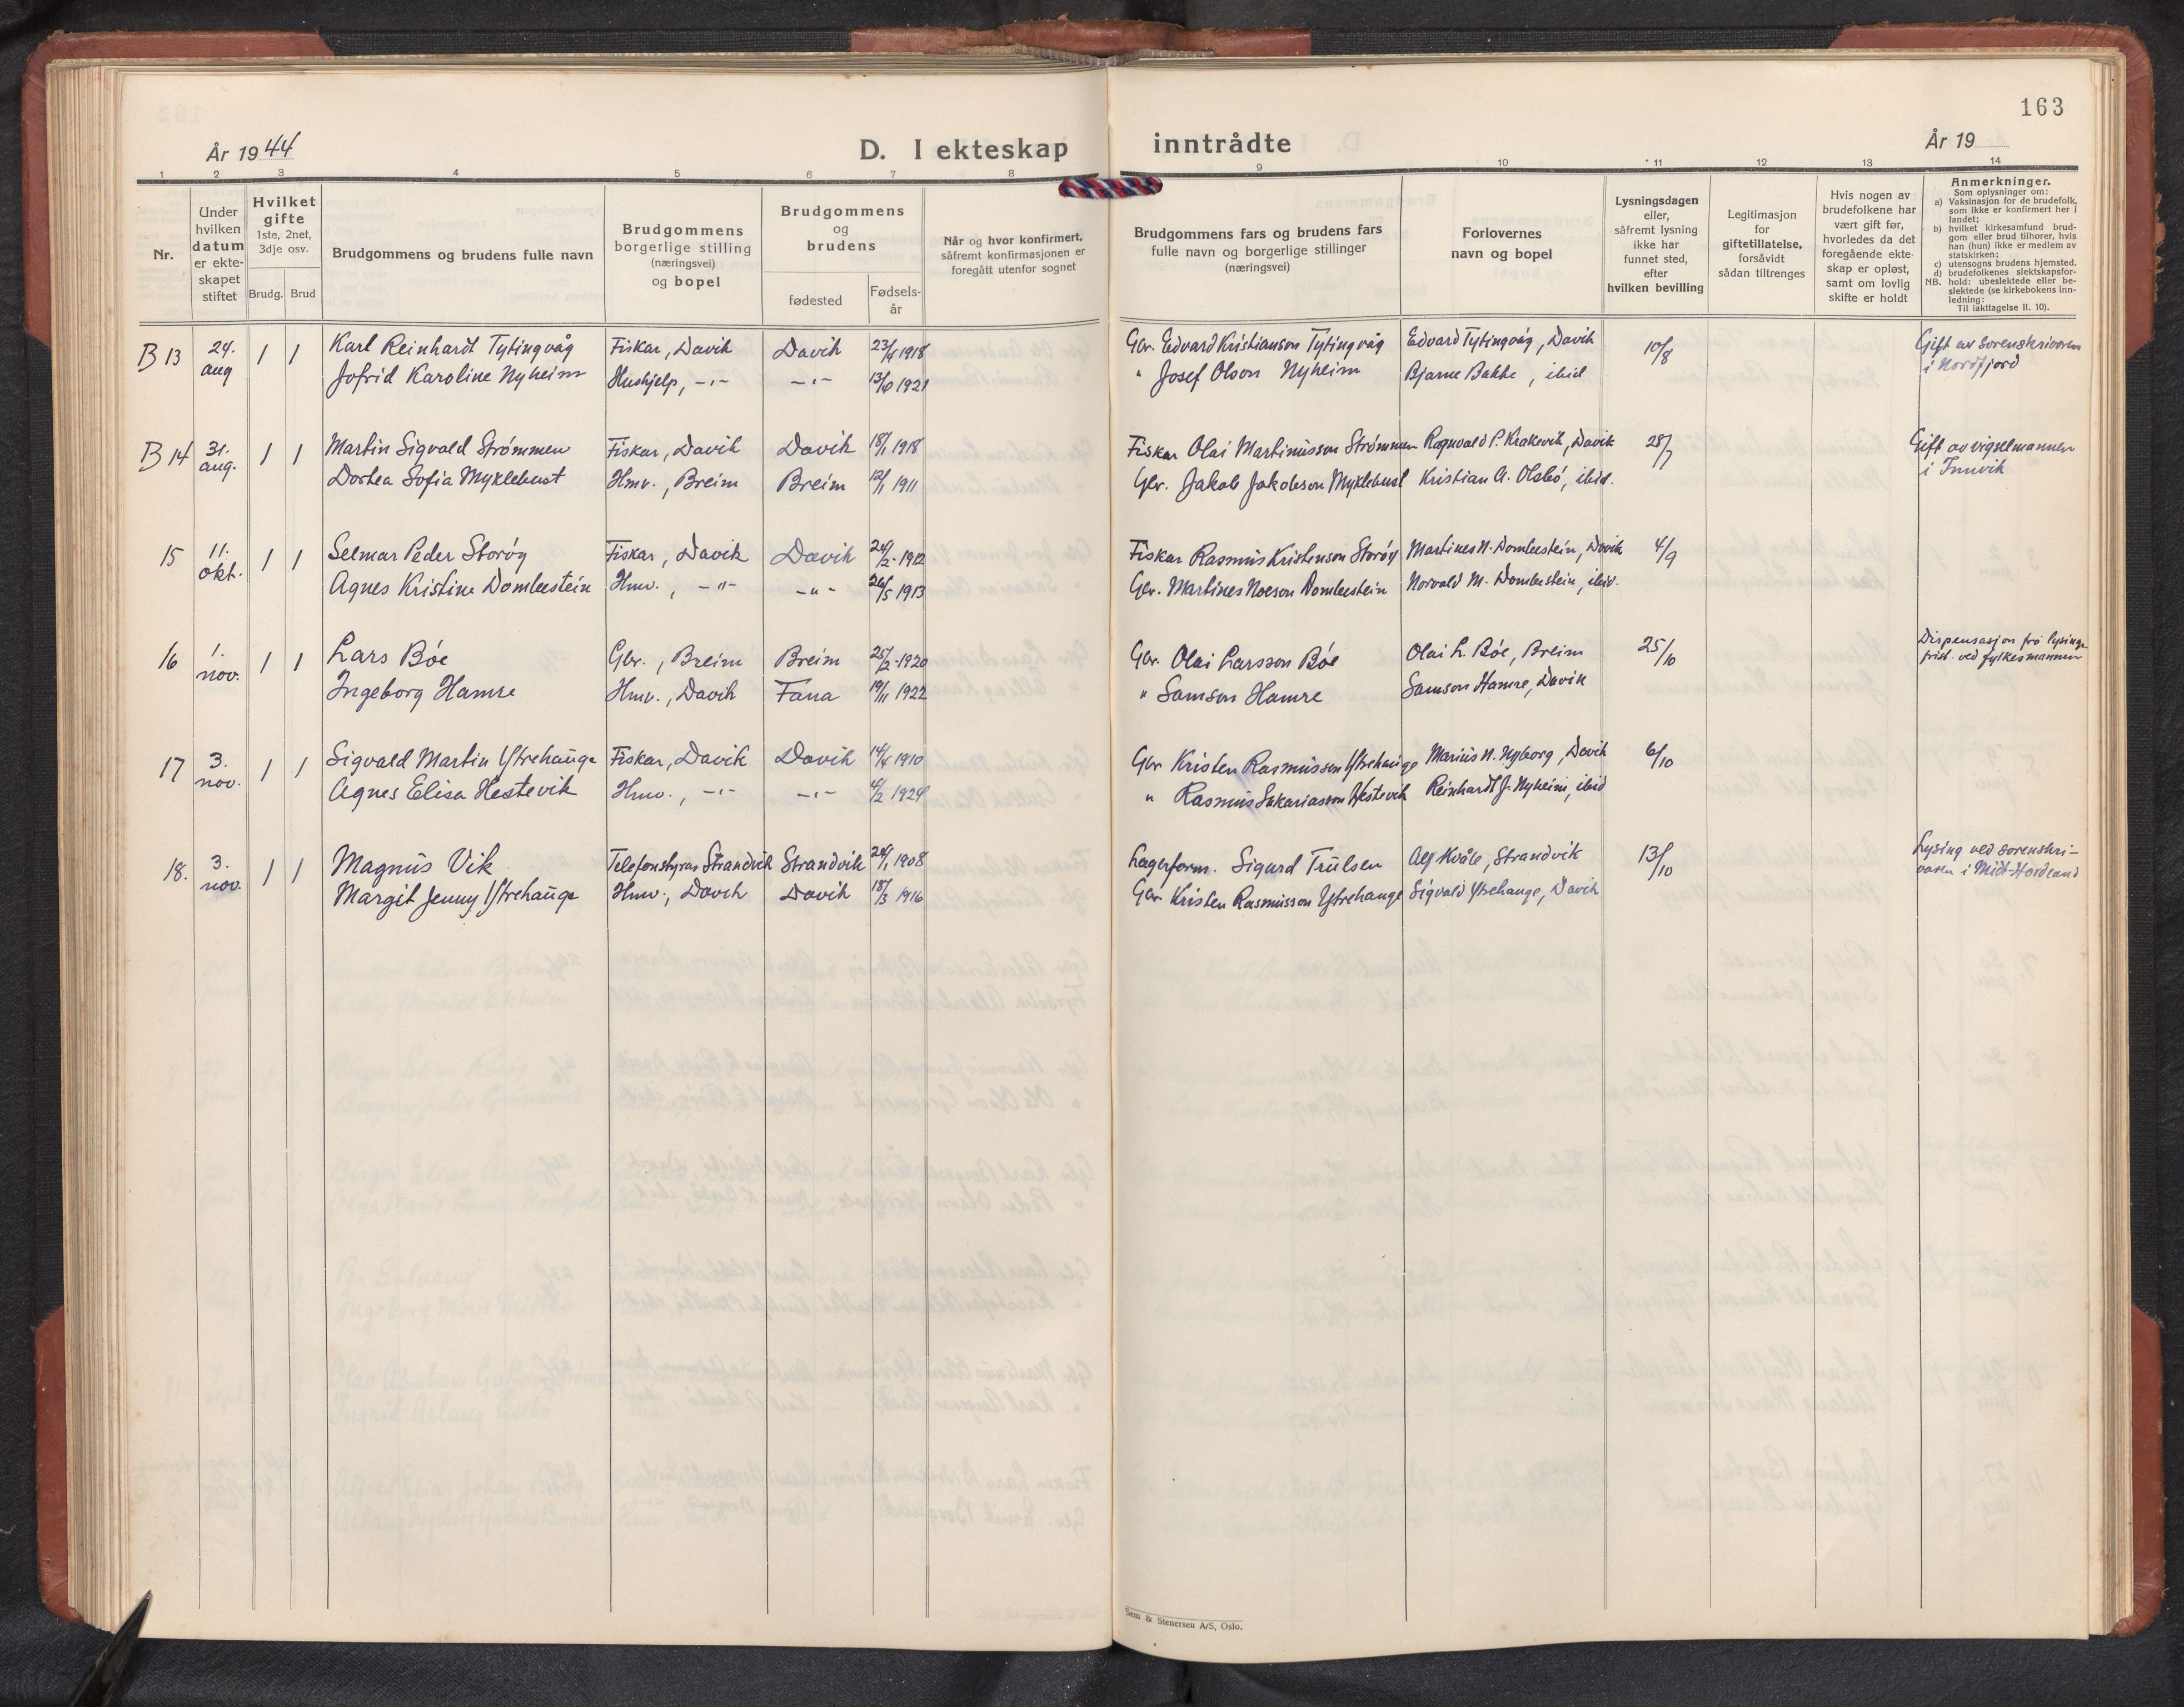 163
År 1944
D. I ekteskap inntrådte
År 19
1 2 3 4 5 6 7 8 9 10 11 12 13 14
Nr.
Under
hvilken
datum
er ekte-
skapet
stiftet
Hvilket
gifte
1ste, 2net,
3dje osv.
Brudg. Brud
Brudgommens og brudens fulle navn
Brudgommens
borgerlige stilling
(næringsvei)
og bopel
Brudgommens
og
brudens
fødested
Fødsels-
år
Når og hvor konfirmert,
såfremt konfirmasjonen er
foregått utenfor sognet
Brudgommens fars og brudens fars
fulle navn og borgerlige stillinger
(næringsvei)
Forlovernes
navn og bopel
Lysningsdagen
eller,
såfremt lysning
ikke har
funnet sted,
efter
hvilken bevilling
Legitimasjon
for
giftetillatelse,
forsåvidt
sådan tiltrenges
Hvis nogen av
brudefolkene har
vært gift før,
hvorledes da det
foregående ekte-
skap er opløst,
samt om lovlig
skifte er holdt
Anmerkninger.
Som oplysninger om:
a) Vaksinasjon for de brudefolk,
som ikke er konfirmert her i
landet;
b) hvilket kirkesamfund brud-
gom eller brud tilhører, hvis
han (hun) ikke er medlem av
statskirken;
c) utensogns brudens hjemsted.
d) brudefolkenes slektskapsfor-
NB. hold: ubeslektede eller be-
slektede (se kirkebokens inn-
ledning:
Til iakttagelse II. 10).
B 13 24. aug 1 1 Karl Reinhardt Tytingvåg Fiskar, Davik Davik 23/4 1918 Gbr. Edvard Kristianson Tytingvåg Edvard Tytingvåg, Davik 10/8 Gift av sorenskrivaren
Jofrid Karoline Nyheim Hushjelp, -"- -"- 13/10 1921 " Josef Olson Nyheim Bjarne Bakke, ibid i Nordfjord
B 14 31. aug. 1 1 Martin Sigvald Strømmen Fiskar, Davik Davik 18/1 1918 Fiskar Olai Martinusson Strømmen Ragnvald P. Krakevik, Davik 28/7 Gift av vigselmannen
Dortea Sofia Myklebust Hmv., Breim Breim 12/1 1911 Gbr. Jakob Jakobson Myklebust Kristian A. Olsbø, ibid. i Innvik
15 11. okt. 1 1 Selmar Peder Storøy Fiskar, Davik Davik 24/2 1912 Fiskar Rasmus Kristenson Storøy Martines N. Dombestein, Davik 4/9
Agnes Kristine Dombestein Hmv., -"- -"- 26/5 1913 Gbr. Martines Noeson Dombestein Norvald M. Dombestein, ibid.
16 1. nov. 1 1 Lars Bøe Gbr., Breim Breim 25/2 1920 Gbr. Olai Larsson Bøe Olai L. Bøe, Breim 25/10 Dispensasjon frå lysings-
Ingeborg Hamre Hmv., Davik Fana 19/11 1922 " Samson Hamre Samson Hamre, Davik frist ved fylkesmannen
17 3. nov. 1 1 Sigvald Martin Ytrehauge Fiskar, Davik Davik 14/4 1910 Gbr Kristen Rasmusson Ytrehauge Marius N. Nyborg, Davik 6/10
Agnes Elisa Hestevik Hmv., -"- -"- 4/2 1924 " Rasmus Sakariasson Hestevik Reinhardt J. Nyheim, ibid
18. 3. nov. 1 1 Magnus Vik Telefonstyrar Strandvik Strandvik 24/1 1908 Lagerform. Sigurd Trulsen Alf Kvåle, Strandvik 13/10 Lysing ved sorenskri-
Margit Jenny Ytrehauge Hmv., Davik Davik 18/3 1916 Gbr. Kristen Rasmusson Ytrehauge Sigvald Ytrehauge, Davik varen i Midt-Hordland
Sem & Stenersen A/S, Oslo.